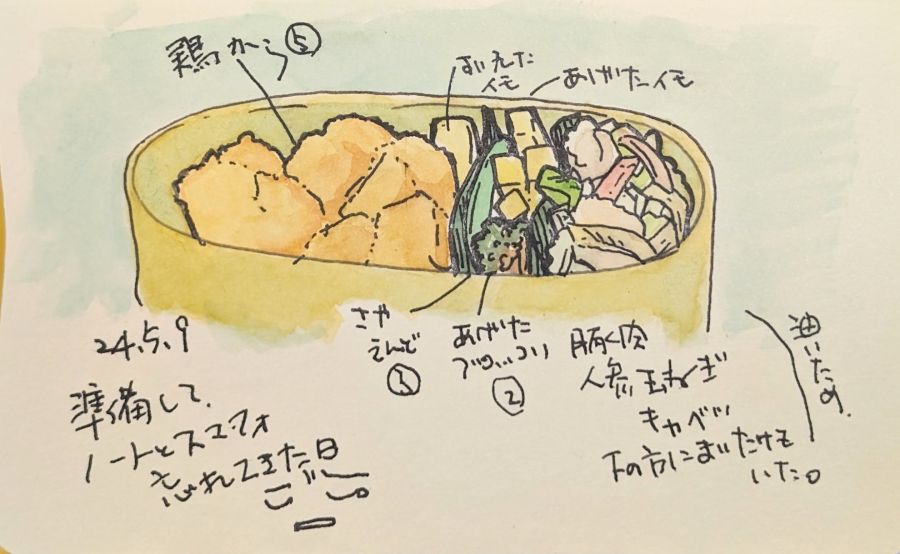 鶏から⑤
イモ
あげたイモ
さや
えんど
③
あげた
ブロッコリ
②
24.5.9
準備して、
ノートと
忘れてきた日
豚肉
人参 玉ねぎ
キャベツ
下の方にまいたけも
いた。
油いため。